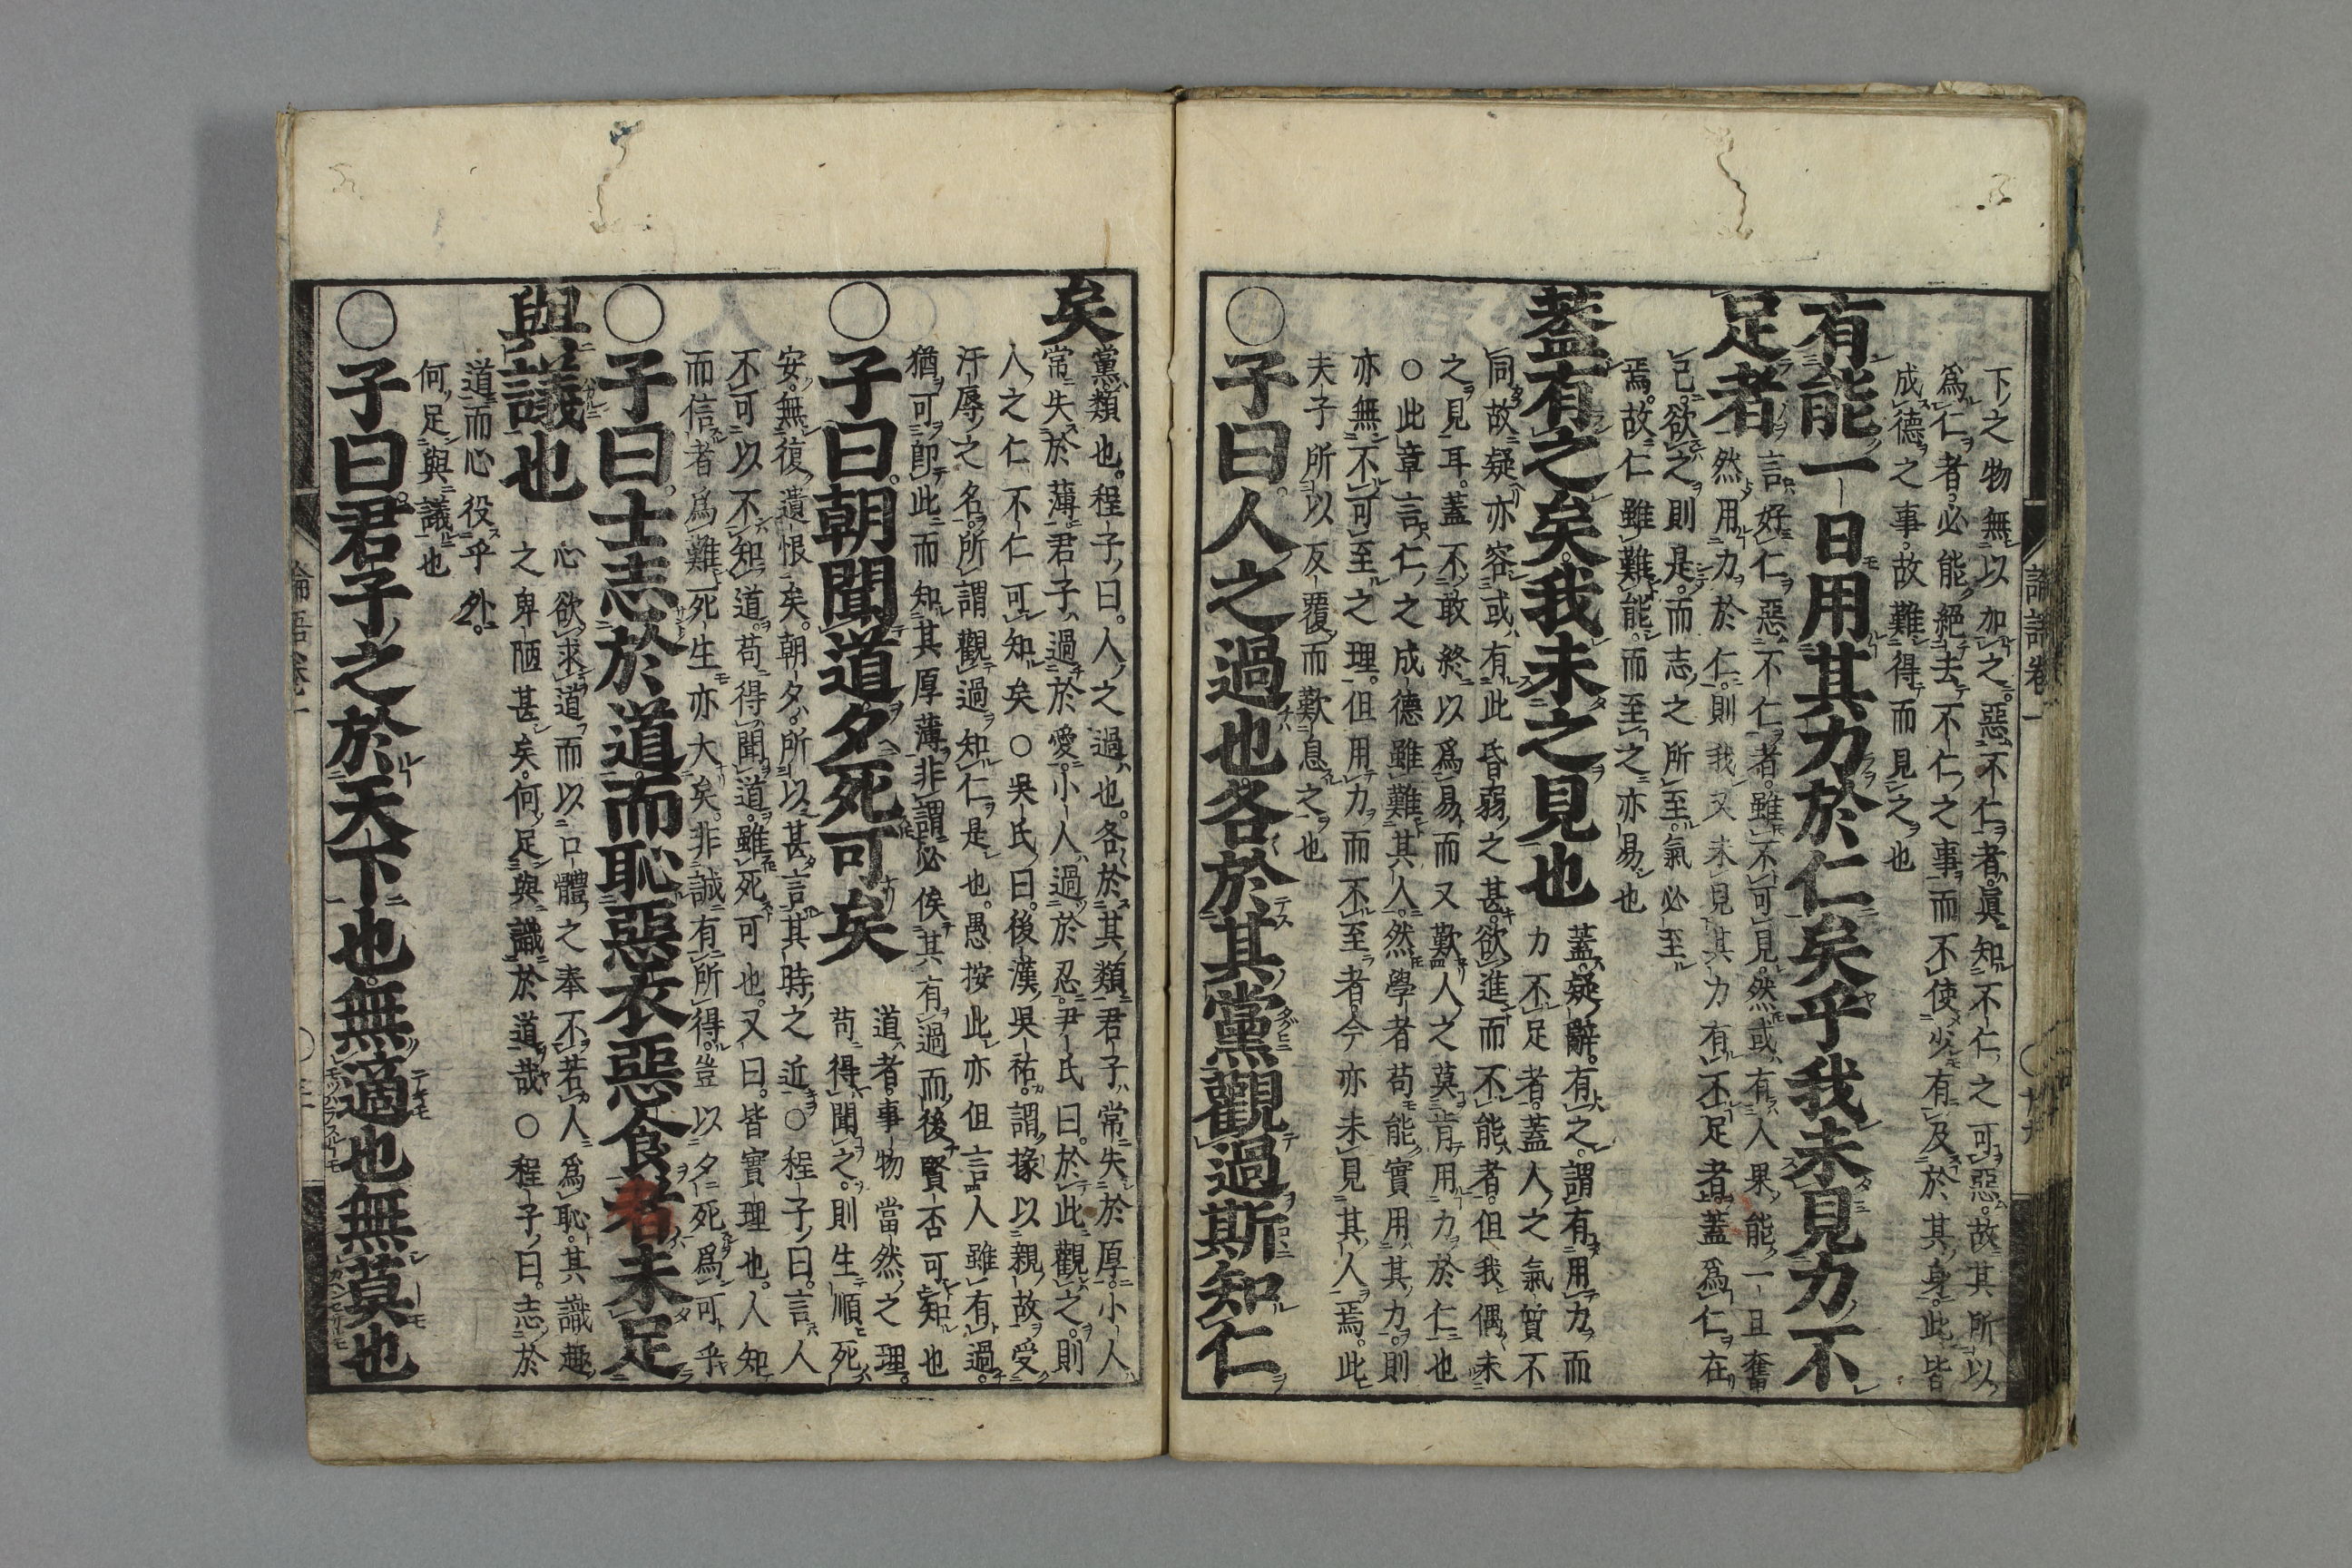 下之物無以加之惡不仁者眞知不仁之可惡故其所以
爲仁者必能絶去不仁之事而不使少有及於其身此皆
成德之事故難得而見之也
有能一日用其力於仁矣乎我未見力不
足者
言好仁惡不仁者雖不可見然或有人果能一旦奮
然用力於仁則我又未見其力有不足者蓋爲仁在
己欲之則是而志之所至氣必至
焉故仁雖難能而至之亦易也
蓋有之矣我未之見也
蓋疑辭有之謂有用力而
力不足者蓋人之氣質不
同故疑亦容或有此昏弱之甚欲進而不能者但我偶未
之見耳蓋不敢終以爲易而又歎人之莫肯用力於仁也
○此章言仁之成德雖難其人然學者苟能實用其力則
亦無不可至之理但用力而不至者今亦未見其人焉此
夫子所以反覆而歎息之也
○子曰人之過也各於其黨觀過斯知仁
矣
黨類也程子曰人之過也各於其類君子常失於厚小人
常失於薄君子過於愛小人過於忍尹氏曰於此觀之則
人之仁不仁可知矣○吳氏曰後漢吳祐謂掾以親故受
汙辱之名所謂觀過知仁是也愚按此亦但言人雖有過
猶可卽此而知其厚薄非謂必俟其有過而後賢否可知也
○子曰朝聞道夕死可矣
道者事物當然之理
苟得聞之則生順死
安無復遺恨矣朝夕所以甚言其時之近○程子曰言人
不可以不知道苟得聞道雖死可也又曰皆實理也人知
而信者爲難死生亦大矣非誠有所得豈以夕死爲可乎
○子曰士志於道而恥惡衣惡食者未足
與議也
心欲求道而以口體之奉不若人爲恥其識趣
之卑陋甚矣何足與識於道哉○程子曰志於
道而心役乎外
何足與議也
○子曰君子之於天下也無適也無莫也